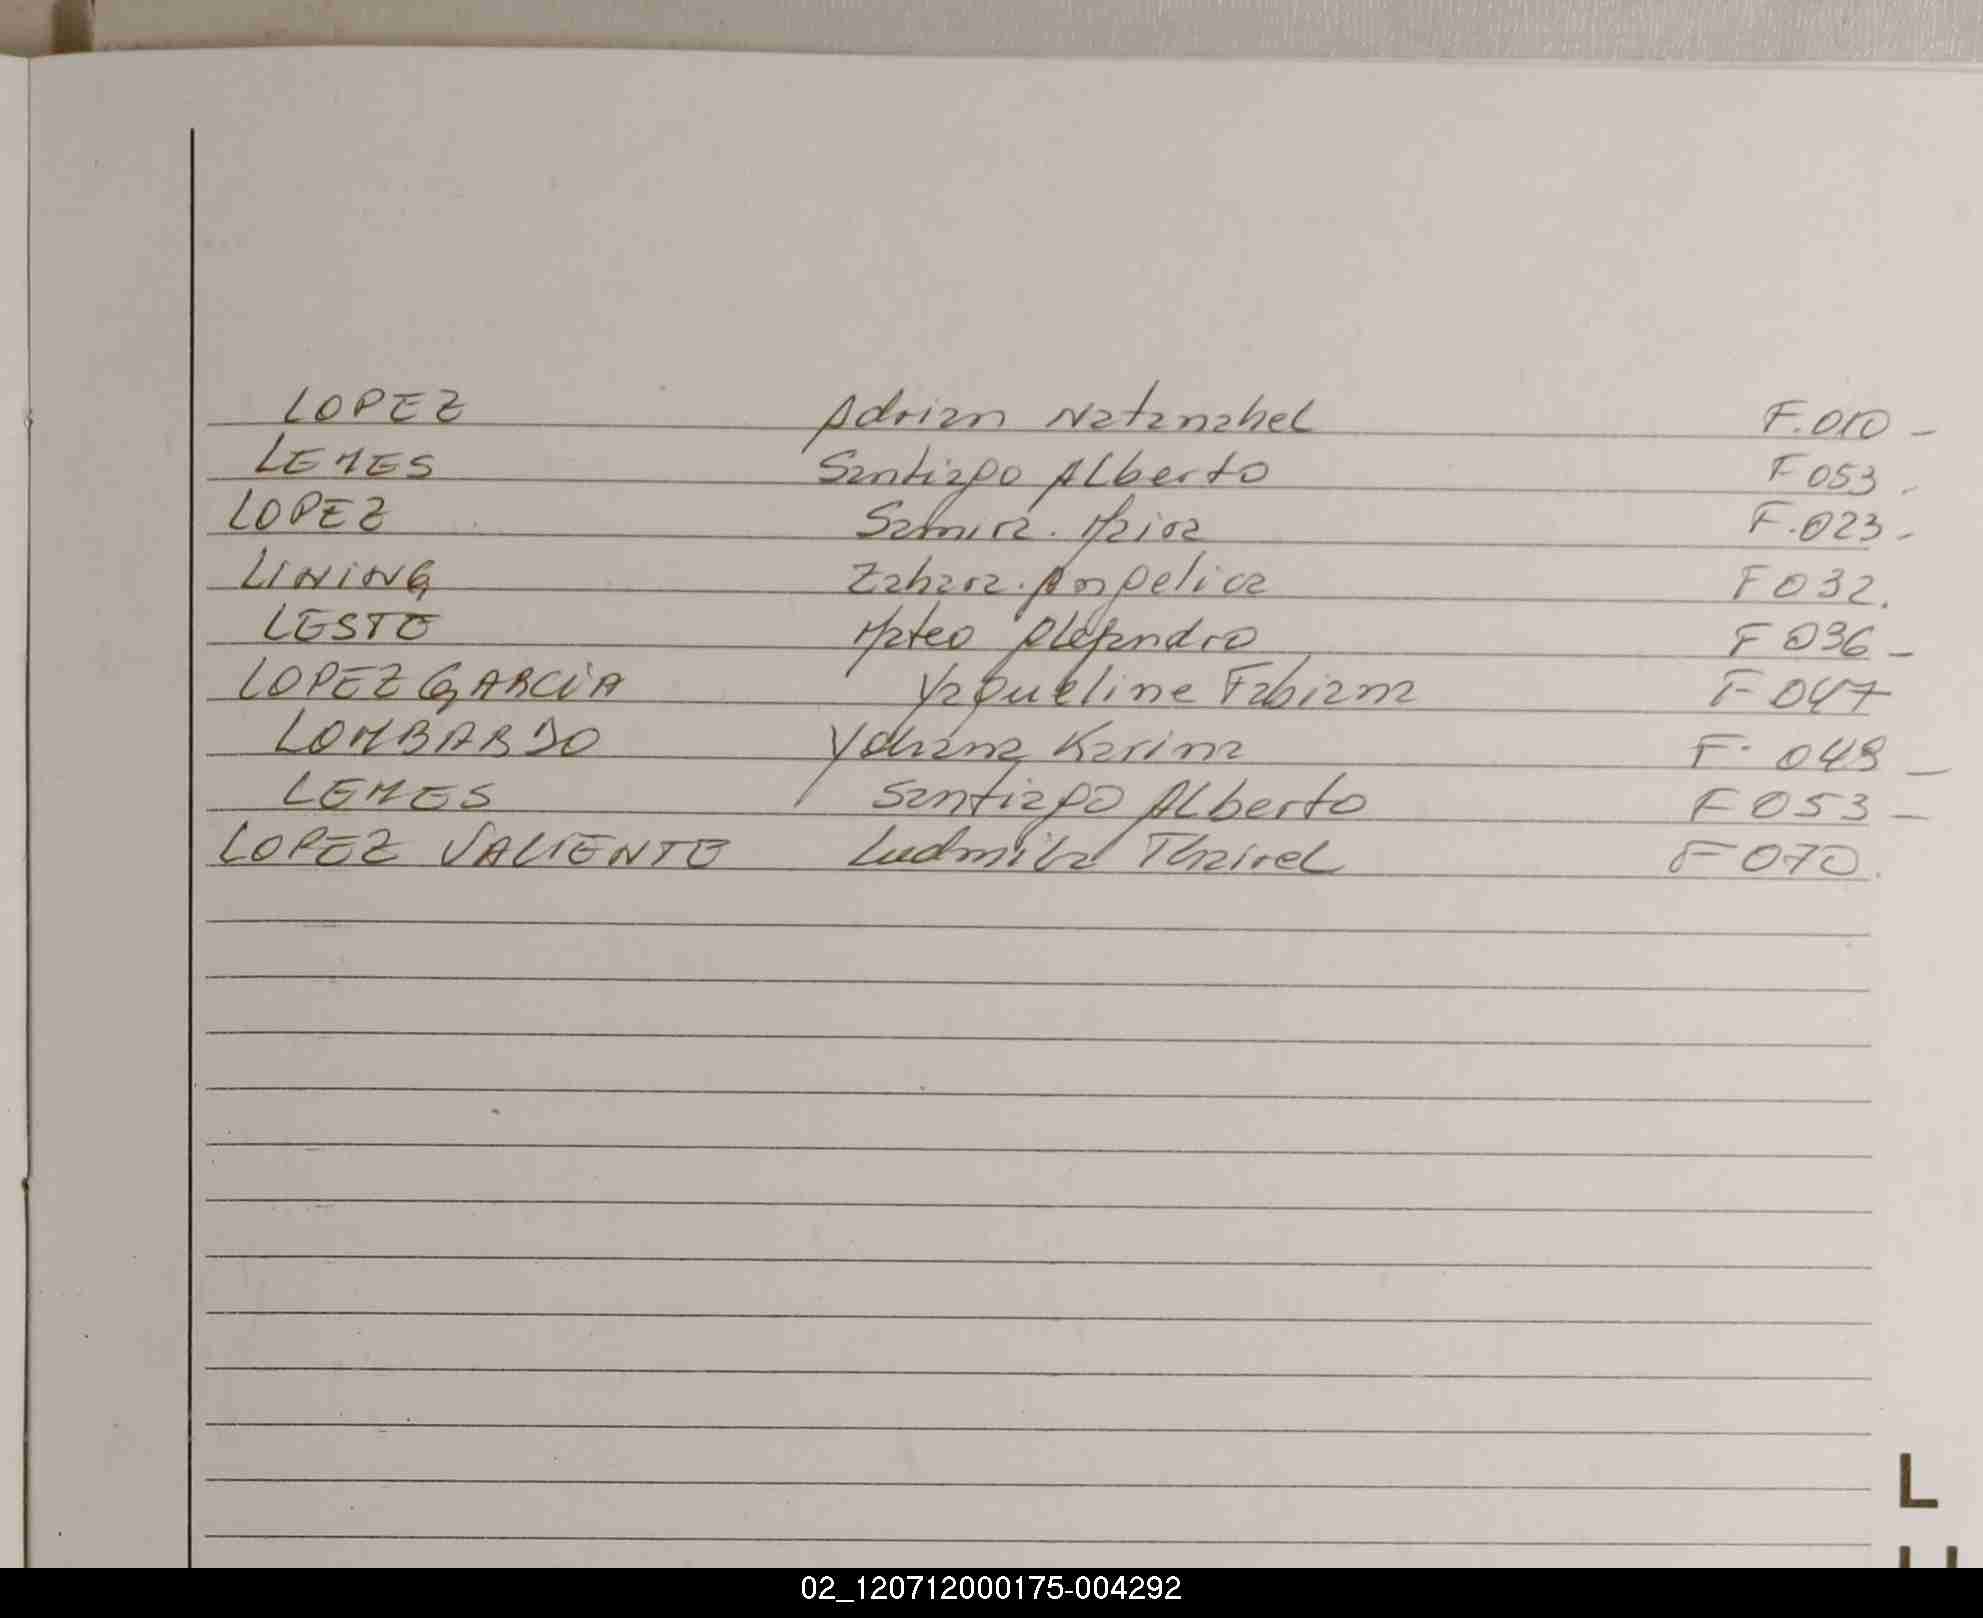 LOPEZ Adrian Natanahel F.010 -
LEMES Santiago Alberto F 053 .
LOPEZ Samira. Maira F.023 -
LINING Zahara. Angelica F 032.
LESTE Mateo Alejandro F 036 -
LOPEZ GARCIA Yaqueline Fabiana F 047
LOMBARDO Yohana Karina F. 048 -
LEMES Santiago Alberto F 053 -
LOPEZ VALIENTE Ludmila Thairel F 070.
L
02_120712000175-004292